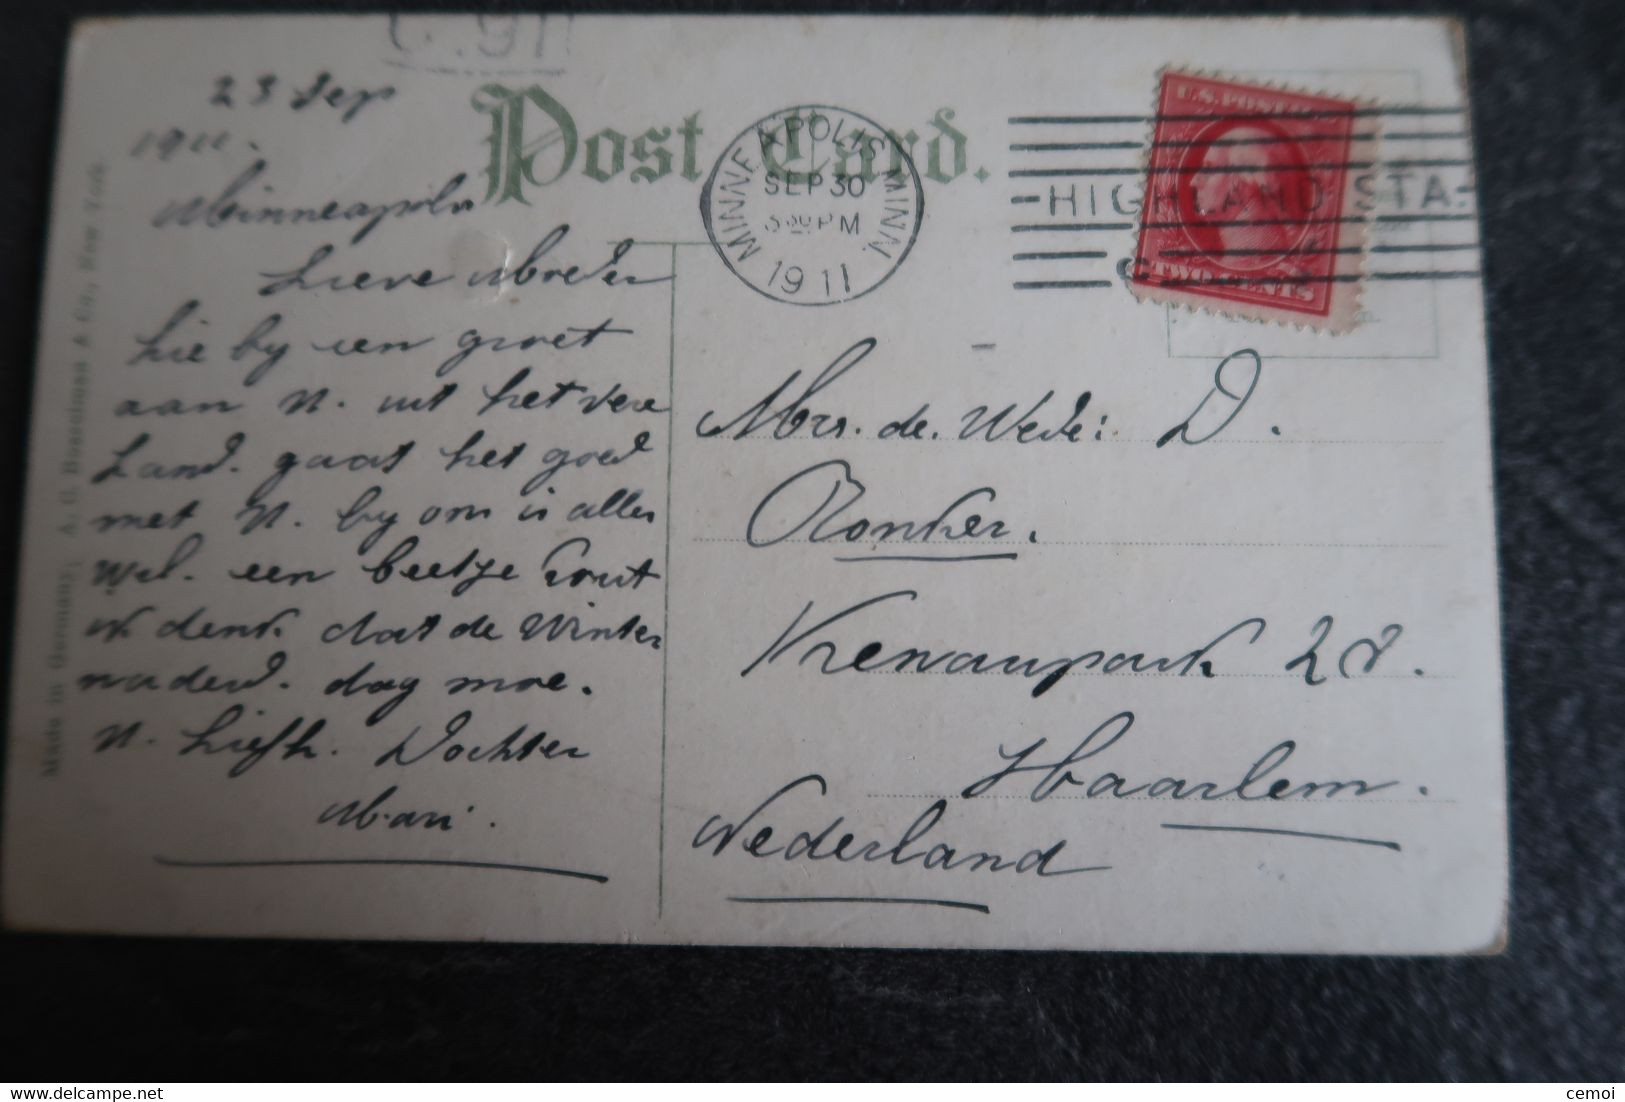 23 Sep
1911.
Minneapolis
Lieve Moeder
hie by een groet
aan U. uit het vere
Land. gaat het goed
met U. by ons is alles
wel. een beetje kout
denk dat de Winter
naderd. dag moe.
U. Liefh. Dochter
Mari.
Post Card.
MINNEAPOLIS MINN.
SEP 30
30 PM
1911
HIGHLAND STA.
U.S. POSTAGE
TWO CENTS
Mrs. de. Wede: D.
Ronker.
28.
Haarlem.
Nederland
Made in Germany, A. O. Boardman & Co., New York.
cemoi